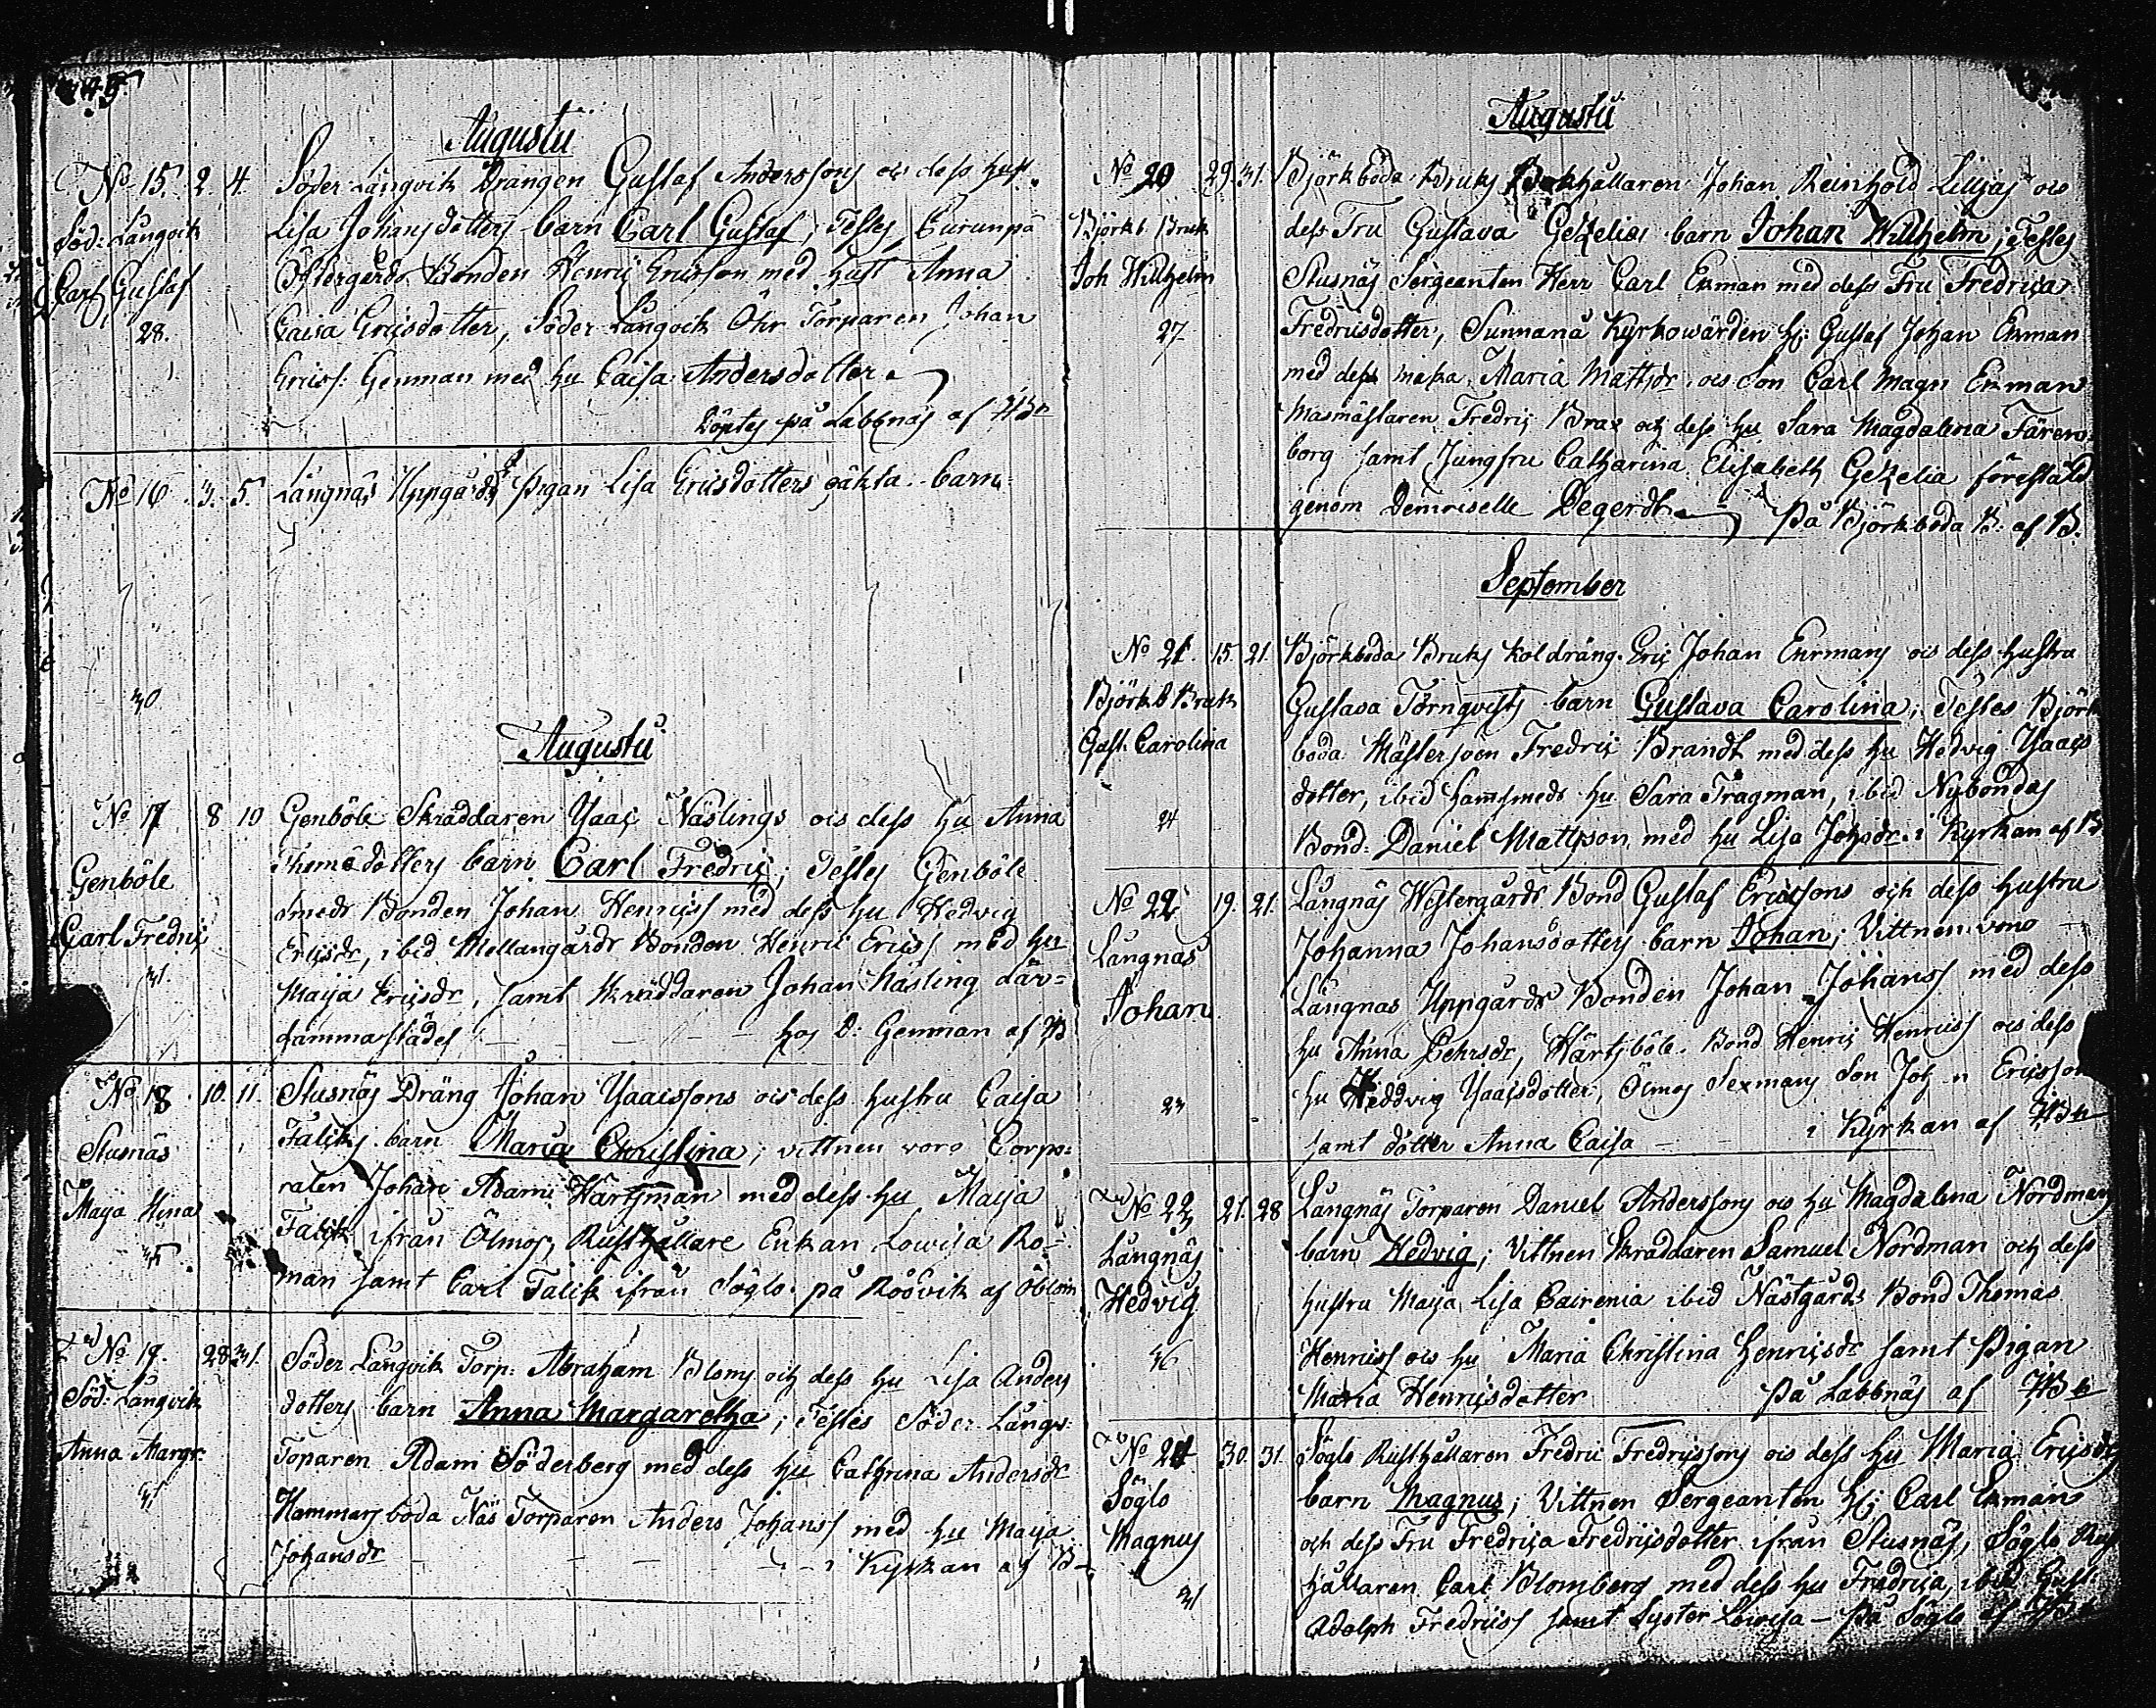 Augustii
No 15. 2. 4. Söder Långvik Drängen Gustaf Anderssons och dess hust.
Söd: Långvik Lisa Johansdotters barn Carl Gustaf; Testes
Carl Gustaf Östergårds Bonden Henric Ericsson med hust Anna
28. Caisa Ericsdotter, Söder Långvik Torparen Johan
Ericss: Genman med hu Caisa Andersdotter.
Döptes på Labbnäs af
No 16 3. 5. Långnäs Uppgårds Pigan Lisa Ericsdotters oäkta barn
30
Augustii
No 17 8 10 Genböle Skräddaren Näslings ocs dess hu Anna
Genböle Thomedotters barn Carl Fredric; Testes Genböle
Carl Fredric smeds Bonden Johan Henricss med dess hu Hedvig
31. Ericsdr, ibid Mellangårds Bonden Henric Ericss med hu
Maija Ericsdr, samt Skräddaren Johan Näsling där=
sammastädes hos Genman af B
No 18 10. 11. Stusnäs Dräng Johan Isaacssons ocs dess hustru Caisa
Stusnäs Falcks barn Maria Christina; vittnen voro Corpo=
Maja Stina ralen Johan Adam Hartman med dess hu Maija
35 Falck ifrån Ölmos, Rusthållare Enkan Lowisa Ro=
man samt Carl Falck ifrån Söglo. på Rosvik af
No 19. 28. 31. Söder Långvik Torp: Abraham Bloms och dess hu Lisa Anders
Söd: Långvik dotters barn Anna Margaretha; Testes Söder Långv:
Anna Margr: Toparen Adam Söderberg med dess hu Cathrina Andersdr
31 Hammarsboda Näs Torparen Anders Johanss med hu Maija
Johansdr i Kyrkan af B
Augustii
No 20 29. 31. Björkboda Bruks Bokhållaren Johan Reinhold Liljas ocs
Björkb. Bruk dess Fru Gustava Gezelias barn Johan Wilhelm; Testes
Joh Wilhelm Stusnäs Sergeanten Herr Carl Ekman med dess Fru Fredrica
27 Fredricsdotter, Sunnanå Kyrkowärden H: Gustaf Johan Ekman
med dess maka Maria Mattsdr. ocs Son Carl Magn Ekman
Masmästaren Fredric Brax och dess hu Sara Magdalena
borg samt Jungfru Catharina Elisabeth Gezelia föreställd
genom Demoiselle Degerdt. På Björkboda B. af B.
September
No 21. 15. 21. Björkboda Bruks koldräng. Eric Johan Ekmans ocs dess hustru
Björkb Bruk Gustava Törnqvists barn Gustava Carolina; Testes Björk
Gust. Carolina boda Mästersven Fredric Brandt med dess hu Hedvig Isaacs
24 dotter, ibid hamsmeds hu Sara Trägman, ibid Nybondas
Bond: Daniel Mattsson med hu Lisa Johsdr. i Kyrkan af B
No 22 19. 21. Långnäs Westergårds Bond Gustaf Ericssons och dess hustru
Långnäs Johanna Johansdotters barn Johan; Vittnen voro
Johan Långnäs Uppgårds Bonden Johan Johanss med dess
hu Anna Gehrsdr, Hertsböle Bond Henric Henricss ocs dess
23 hu Heddvig Isaacsdotter, Ölmos Sexmans Son Joh Ericsson
samt dotter Anna Caisa i Kyrkan af
No 23 21. 28 Långnäs Torparen Daniel Anderssons ocs hu Magdalena Nordmans
Långnäs barn Hedvig; Vittnen Skräddaren Samuel Nordman och dess
Hedvig hustru Maija Lisa Cairenia ibid Nästgårds Bond Thomas
36 Henricss ocs hu Maria Christina Henricsdr samt Pigan
Maria Henricsdotter På Labbnäs af
No 24 30. 31. Söglo Rusthållaren Fredric Fredricssons ocs dess hu Maria Ericsdr
Söglo barn Magnus; Vittnen Sergeanten H: Carl Ekman
Magnus och dess Fru Fredrica Fredricsdotter ifrån Stusnäs, Söglo Rust
31 hållaren Carl Blomberg med dess hu Fredrica, ibid Gust
Adolph Fredricss samt Syster Lovisa - På Söglo af